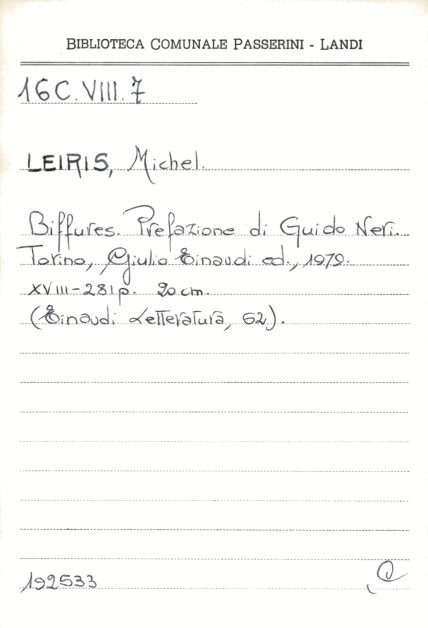 BIBLIOTECA COMUNALE PASSERINI - LANDI
16C.VIII.7
LEIRIS, Michel.
Biffures. Prefazione di Guido Neri.
Torino, Giulio Einaudi ed., 1979.
XVIII-281p. 20 cm.
(Einaudi Letteratura, 62).
192533